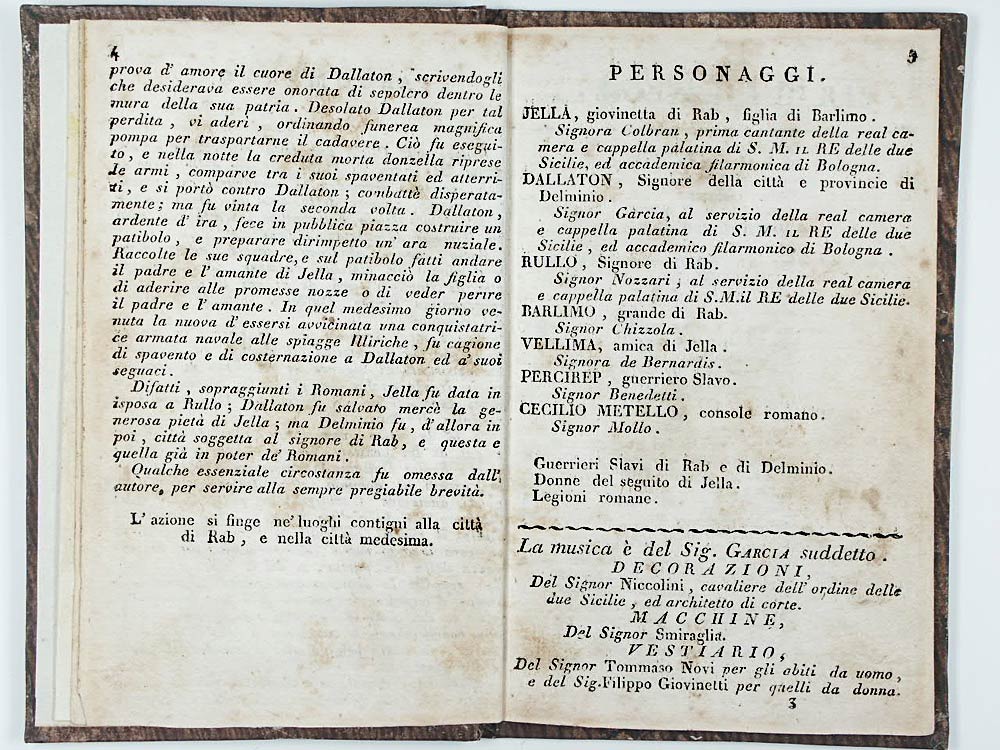 4
prova d' amore il cuore di Dallaton , scrivendogli
che desiderava essere onorata di sepolcro dentro le
mura della sua patria . Desolato Dallaton per tal
perdita , vi aderì , ordinando funerea magnifica
pompa per trasportarne il cadavere . Ciò fu esegui-
to, e nella notte la creduta morta donzella riprese
le armi , comparve tra i suoi spaventati ed atterri-
ti, e si portò contro Dallaton ; combattè disperata-
mente; ma fu vinta la seconda volta . Dallaton ,
ardente d' ira , fece in pubblica piazza costruire un
patibolo , e preparare dirimpetto un' ara nuziale.
Raccolte le sue squadre, e sul patibolo fatti andare
il padre e l' amante di Jella , minacciò la figlia o
di aderire alle promesse nozze o di veder perire
il padre e l' amante . In quel medesimo giorno ve-
nuta la nuova d' essersi avvicinata una conquistatri-
ce armata navale alle spiagge Illiriche , fu cagione
di spavento e di costernazione a Dallaton ed a' suoi
seguaci .
Difatti , sopraggiunti i Romani, Jella fu data in
isposa a Rullo ; Dallaton fu salvato mercè la ge-
nerosa pietà di Jella ; ma Delminio fu , d' allora in
poi , città soggetta al signore di Rab, e questa e
quella già in poter de' Romani .
Qualche essenziale circostanza fu omessa dall'
autore, per servire alla sempre pregiabile brevità.
L' azione si finge ne' luoghi contigui alla città
di Rab , e nella città medesima.
5
PERSONAGGI.
JELLA, giovinetta di Rab , figlia di Barlimo .
Signora Colbran , prima cantante della real ca-
mera e cappella palatina di S. M. IL RE delle due
Sicilie, ed accademica filarmonica di Bologna.
DALLATON , Signore della città e provincie di
Delminio .
Signor Garcia, al servizio della real camera
e cappella palatina di S. M. IL RE delle due
Sicilie , ed accademico filarmonico di Bologna .
RULLO , Signore di Rab.
Signor Nozzari ; al servizio della real camera
e cappella palatina di S.M.il RE delle due Sicilie.
BARLIMO , grande di Rab.
Signor Chizzola .
VELLIMA, amica di Jella .
Signora de Bernardis.
PERCIREP , guerriero Slavo.
Signor Benedetti .
CECILIO METELLO , console romano .
Signor Mollo .
Guerrieri Slavi di Rab e di Delminio.
Donne del seguito di Jella.
Legioni romane.
La musica è del Sig. GARCIA suddetto .
DECORAZIONI,
Del Signor Niccolini , cavaliere dell' ordine delle
due Sicilie , ed architetto di corte.
MACCHINE,
Del Signor Smiraglia.
VESTIARIO,
Del Signor Tommaso Novi per gli abiti da uomo ,
e del Sig.Filippo Giovinetti per quelli da donna.
3